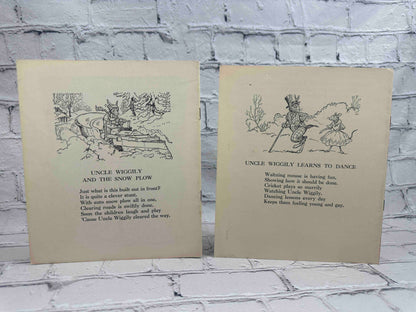 UNCLE WIGGILY
AND THE SNOW PLOW
Just what is this built out in front?
It is quite a clever stunt.
With auto snow plow all in one,
Clearing roads is swiftly done.
Soon the children laugh and play
'Cause Uncle Wiggily cleared the way.
UNCLE WIGGILY LEARNS TO DANCE
Waltzing mouse is having fun,
Showing how it should be done.
Cricket plays so merrily
Watching Uncle Wiggily.
Dancing lessons every day
Keeps them feeling young and gay.